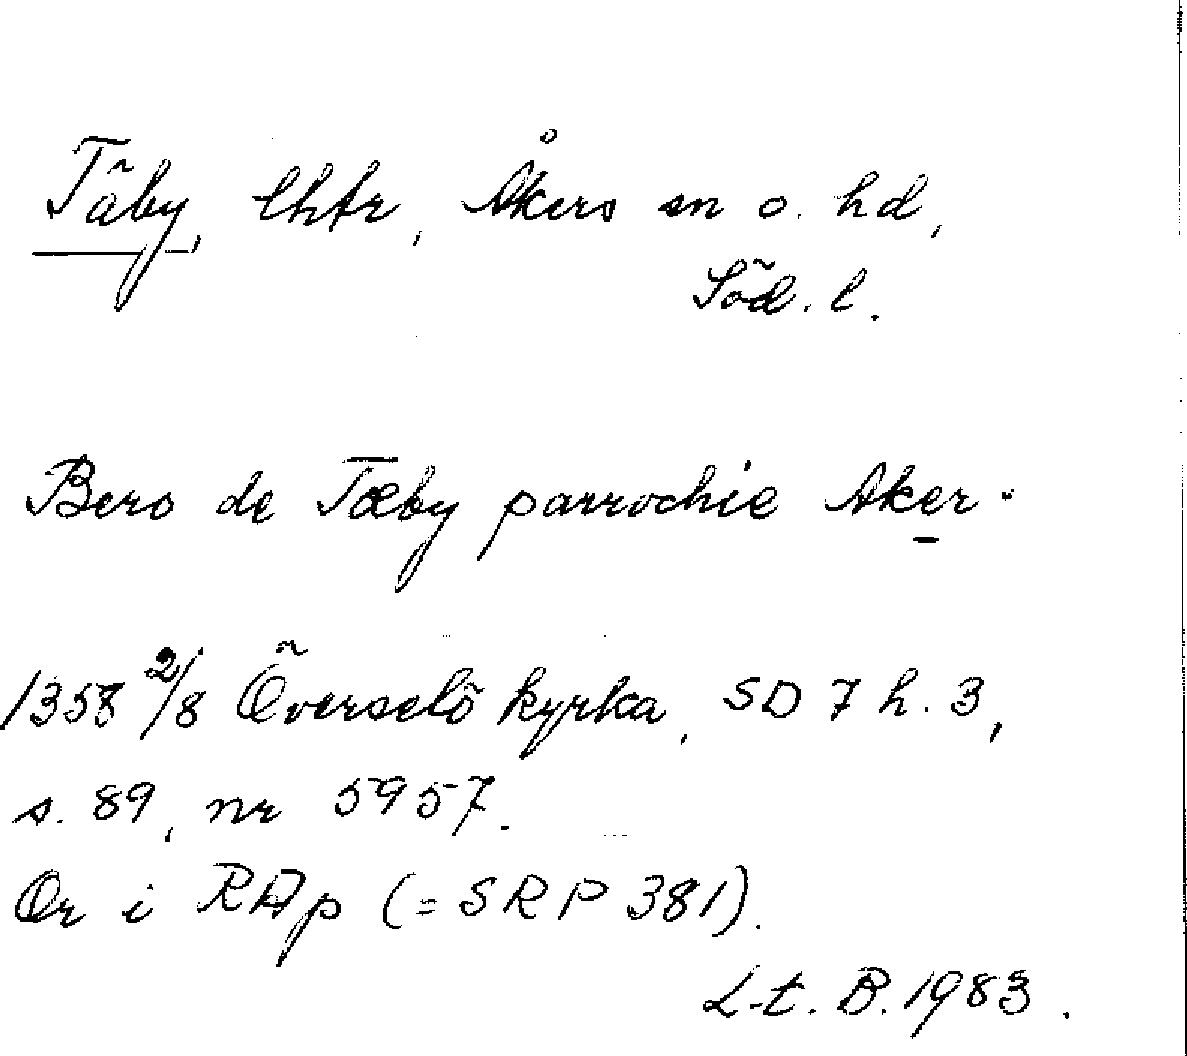 Täby, thtr, Åkers sn o. hd,
Söd. l.
Bero de Tæby parrochie Aker.
1358 2/8 Överselö kyrka, SD 7 h. 3,
s. 89, nr 5957.
Or i RAp (= SRP 381).
L-t. B. 1983.